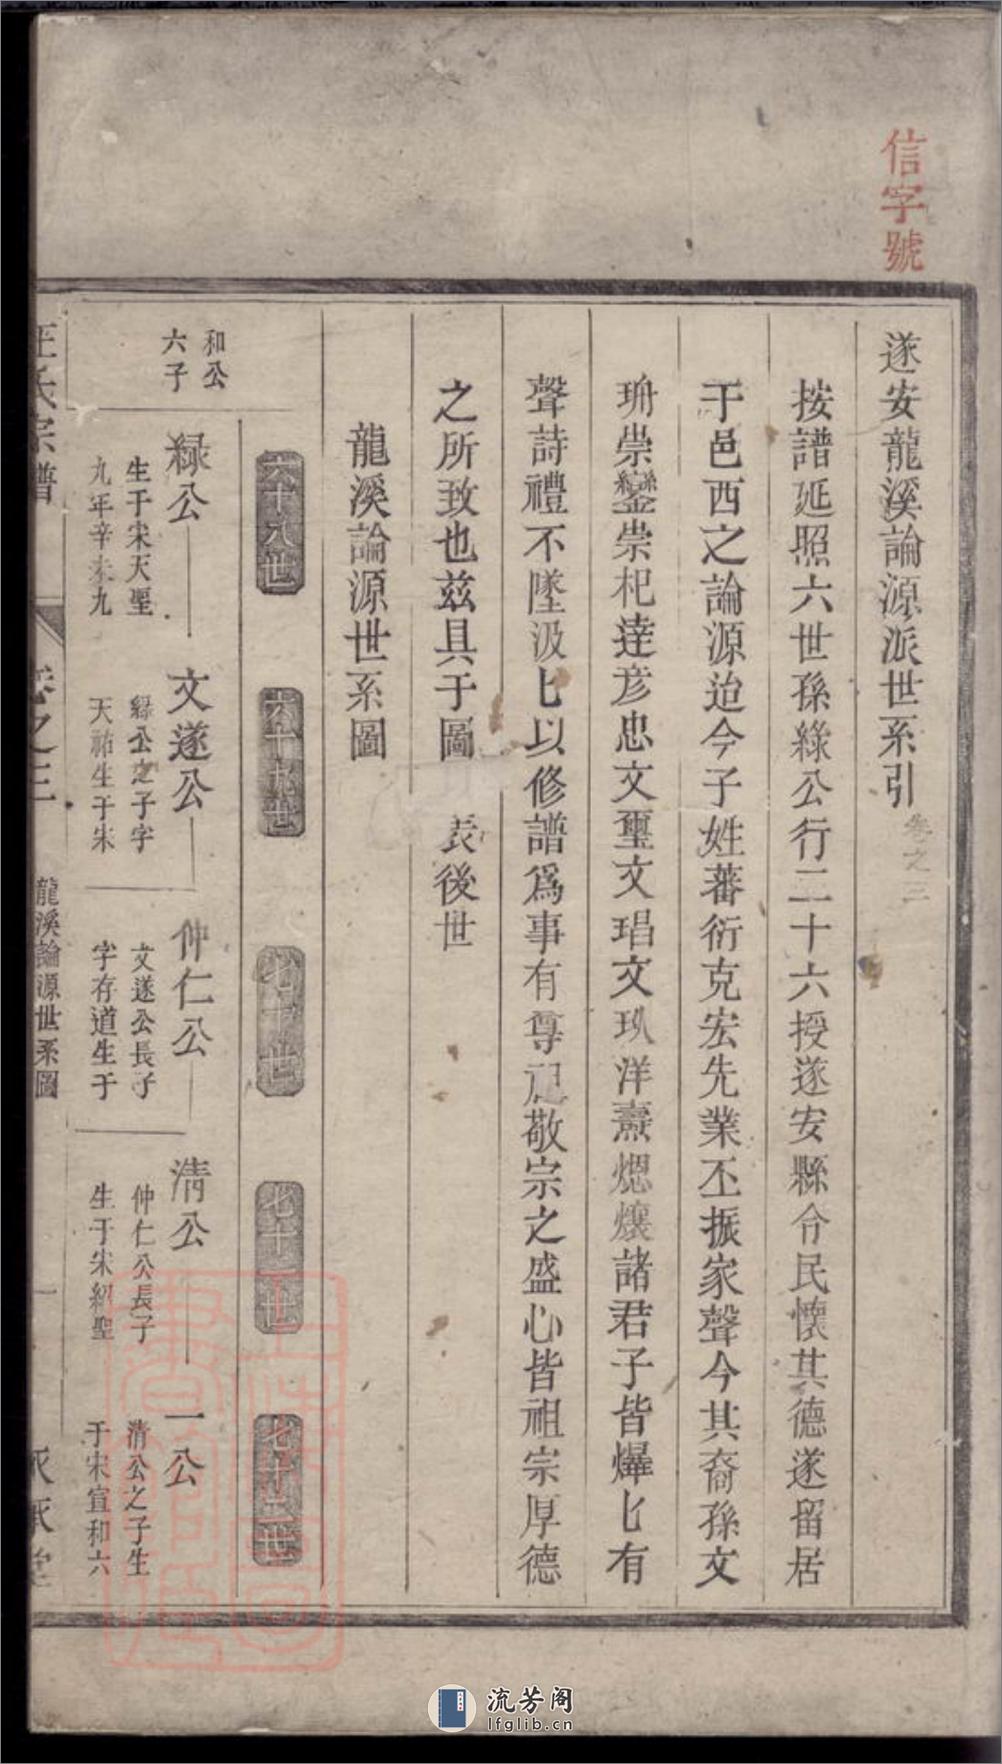 信字號
遂安龍溪論源派世系引 卷之三
按譜延照六世孫緑公行二十六授遂安縣令民懷其德遂留居
于邑西之論源迨今子姓蕃衍克宏先業丕振家聲今其裔孫文
珊崇鑾崇杞逹彦忠文璽文琩文玖洋燾熜爙諸君子皆爗匕有
聲詩禮不墜汲匕以修譜爲事有尊祖敬宗之盛心皆祖宗厚德
之所致也茲具于圖 表後世
龍溪論源世系圖
六十八世 六十九世 七十世 七十一世 七十二世
和公六子
緑公 生于宋天聖九年辛未九
文遂公 緑公之子字天祐生于宋
仲仁公 文遂公長子字存道生于
清公 仲仁公長子生于宋紹聖
一公 清公之子生于宋宣和六
汪氏宗譜 卷之三 龍溪論源世系圖 一
流芳阁
lfglib.cn